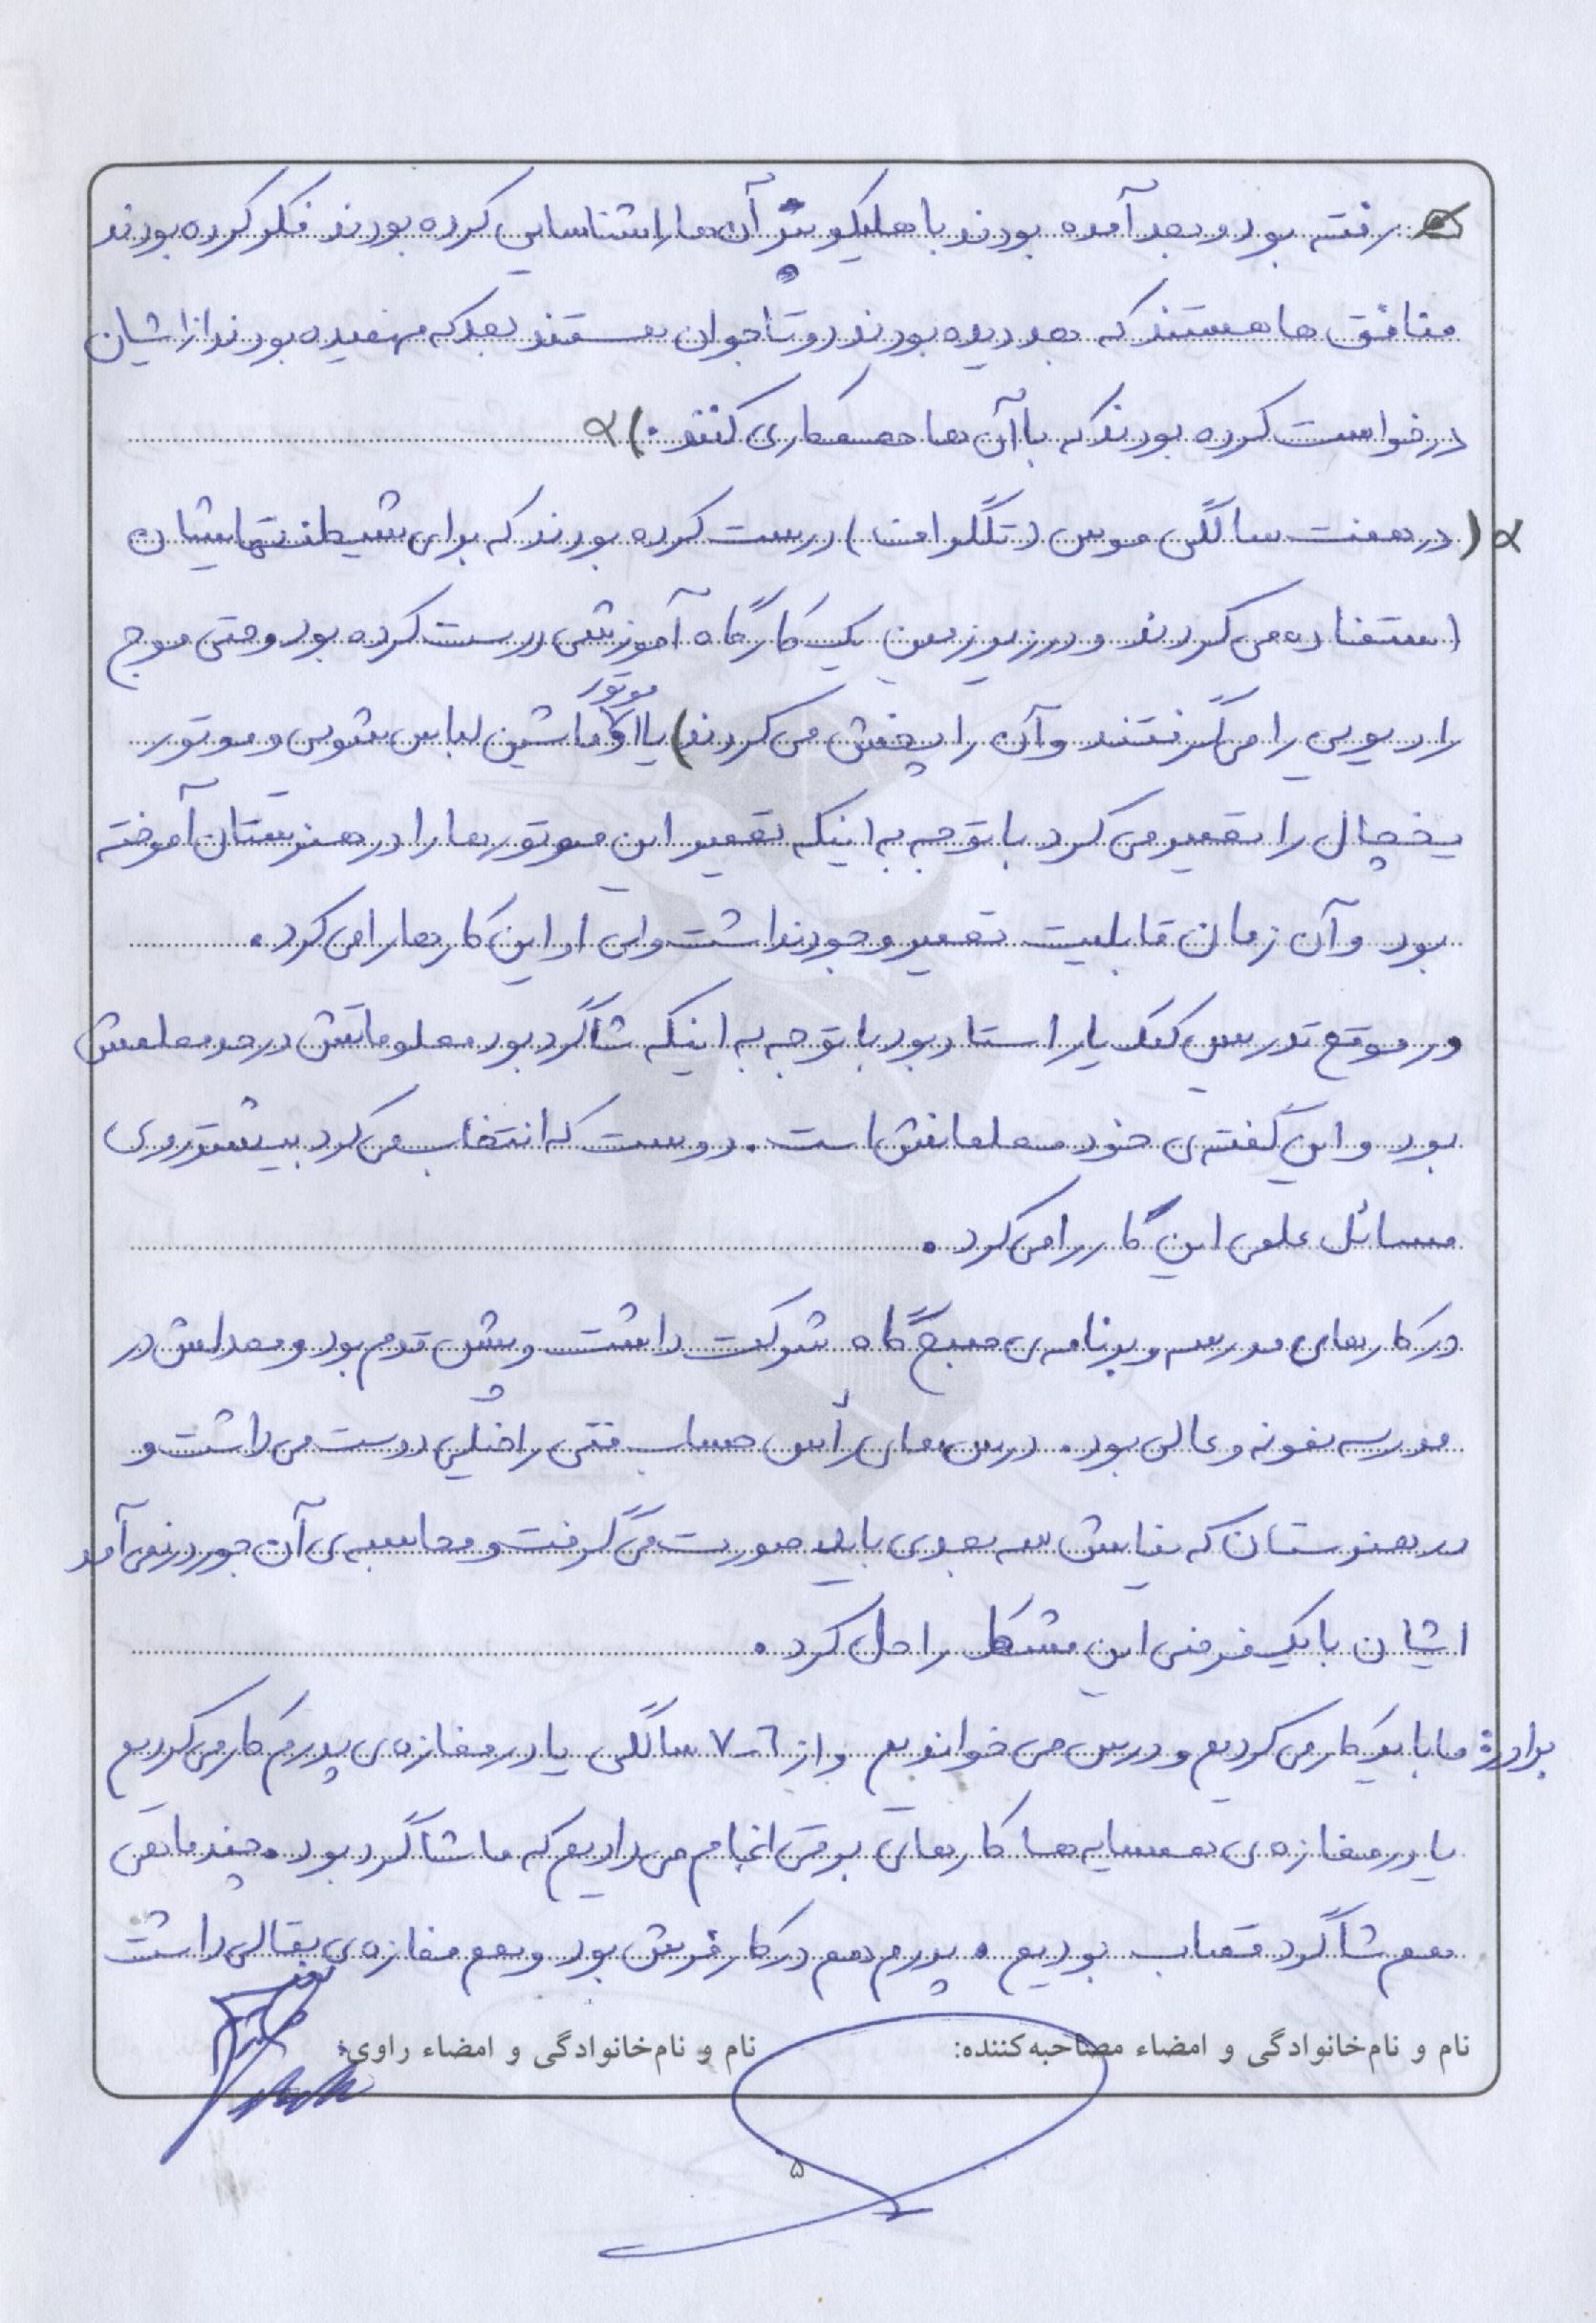 رفته بود و بعد آمده بودند با هلیکوپتر آن ها را شناسایی کرده بودند فکر کرده بودند
منافق ها هستند که بعد دیده بودند دو تا جوان هستند بعد که فهمیده بودند از ایشان
درخواست کرده بودند که با آن ها همکاری کنند.) α
α (در هفت سالگی مرس (تلگراف) درست کرده بودند که برای شیطنتهایشان
استفاده می کردند و در زیر زمین یک کارگاه آموزشی درست کرده بود و حتی موج
رادیویی را می گرفتند و آن را پخش می کردند) یا موتور ماشین لباس شویی و موتور
یخچال را تعمیر می کرد با توجه به اینکه تعمیر این موتورها را در هنرستان آموخته
بود و آن زمان قابلیت تعمیر وجود نداشت ولی او این کارها را می کرد.
در موقع تدریس کمک یار استاد بود با توجه به اینکه شاگرد بود معلوماتش در حد معلمش
بود و این گفته ی خود معلمانش است. دوست که انتخاب می کرد بیشتر روی
مسائل علمی این کار را می کرد.
در کارهای مدرسه و برنامه ی صبح گاه شرکت داشت و پیش قدم بود و معدلش در
مدرسه نمونه و عالی بود. درس های رأس حساب فنی را خیلی دوست می داشت و
در هنرستان که نمایش سه بعدی باید صورت می گرفت و محاسبه ی آن جور در نمی آمد
ایشان با یک فرضی این مشکل را حل کرد.
برادر: ما باید کار می کردیم و درس می خواندیم و از ۶-۷ سالگی یا در مغازه ی پدرم کار می کردیم
یا در مغازه ی همسایه ها کارهای برقی انجام می دادیم که ما شاگرد بود. چند ماهی
هم شاگرد قصاب بودیم. پدرم هم در کار فرش بود و هم مغازه ی بقالی داشت
نام و نام‌خانوادگی و امضاء مصاحبه‌کننده: نام و نام‌خانوادگی و امضاء راوی:
۵